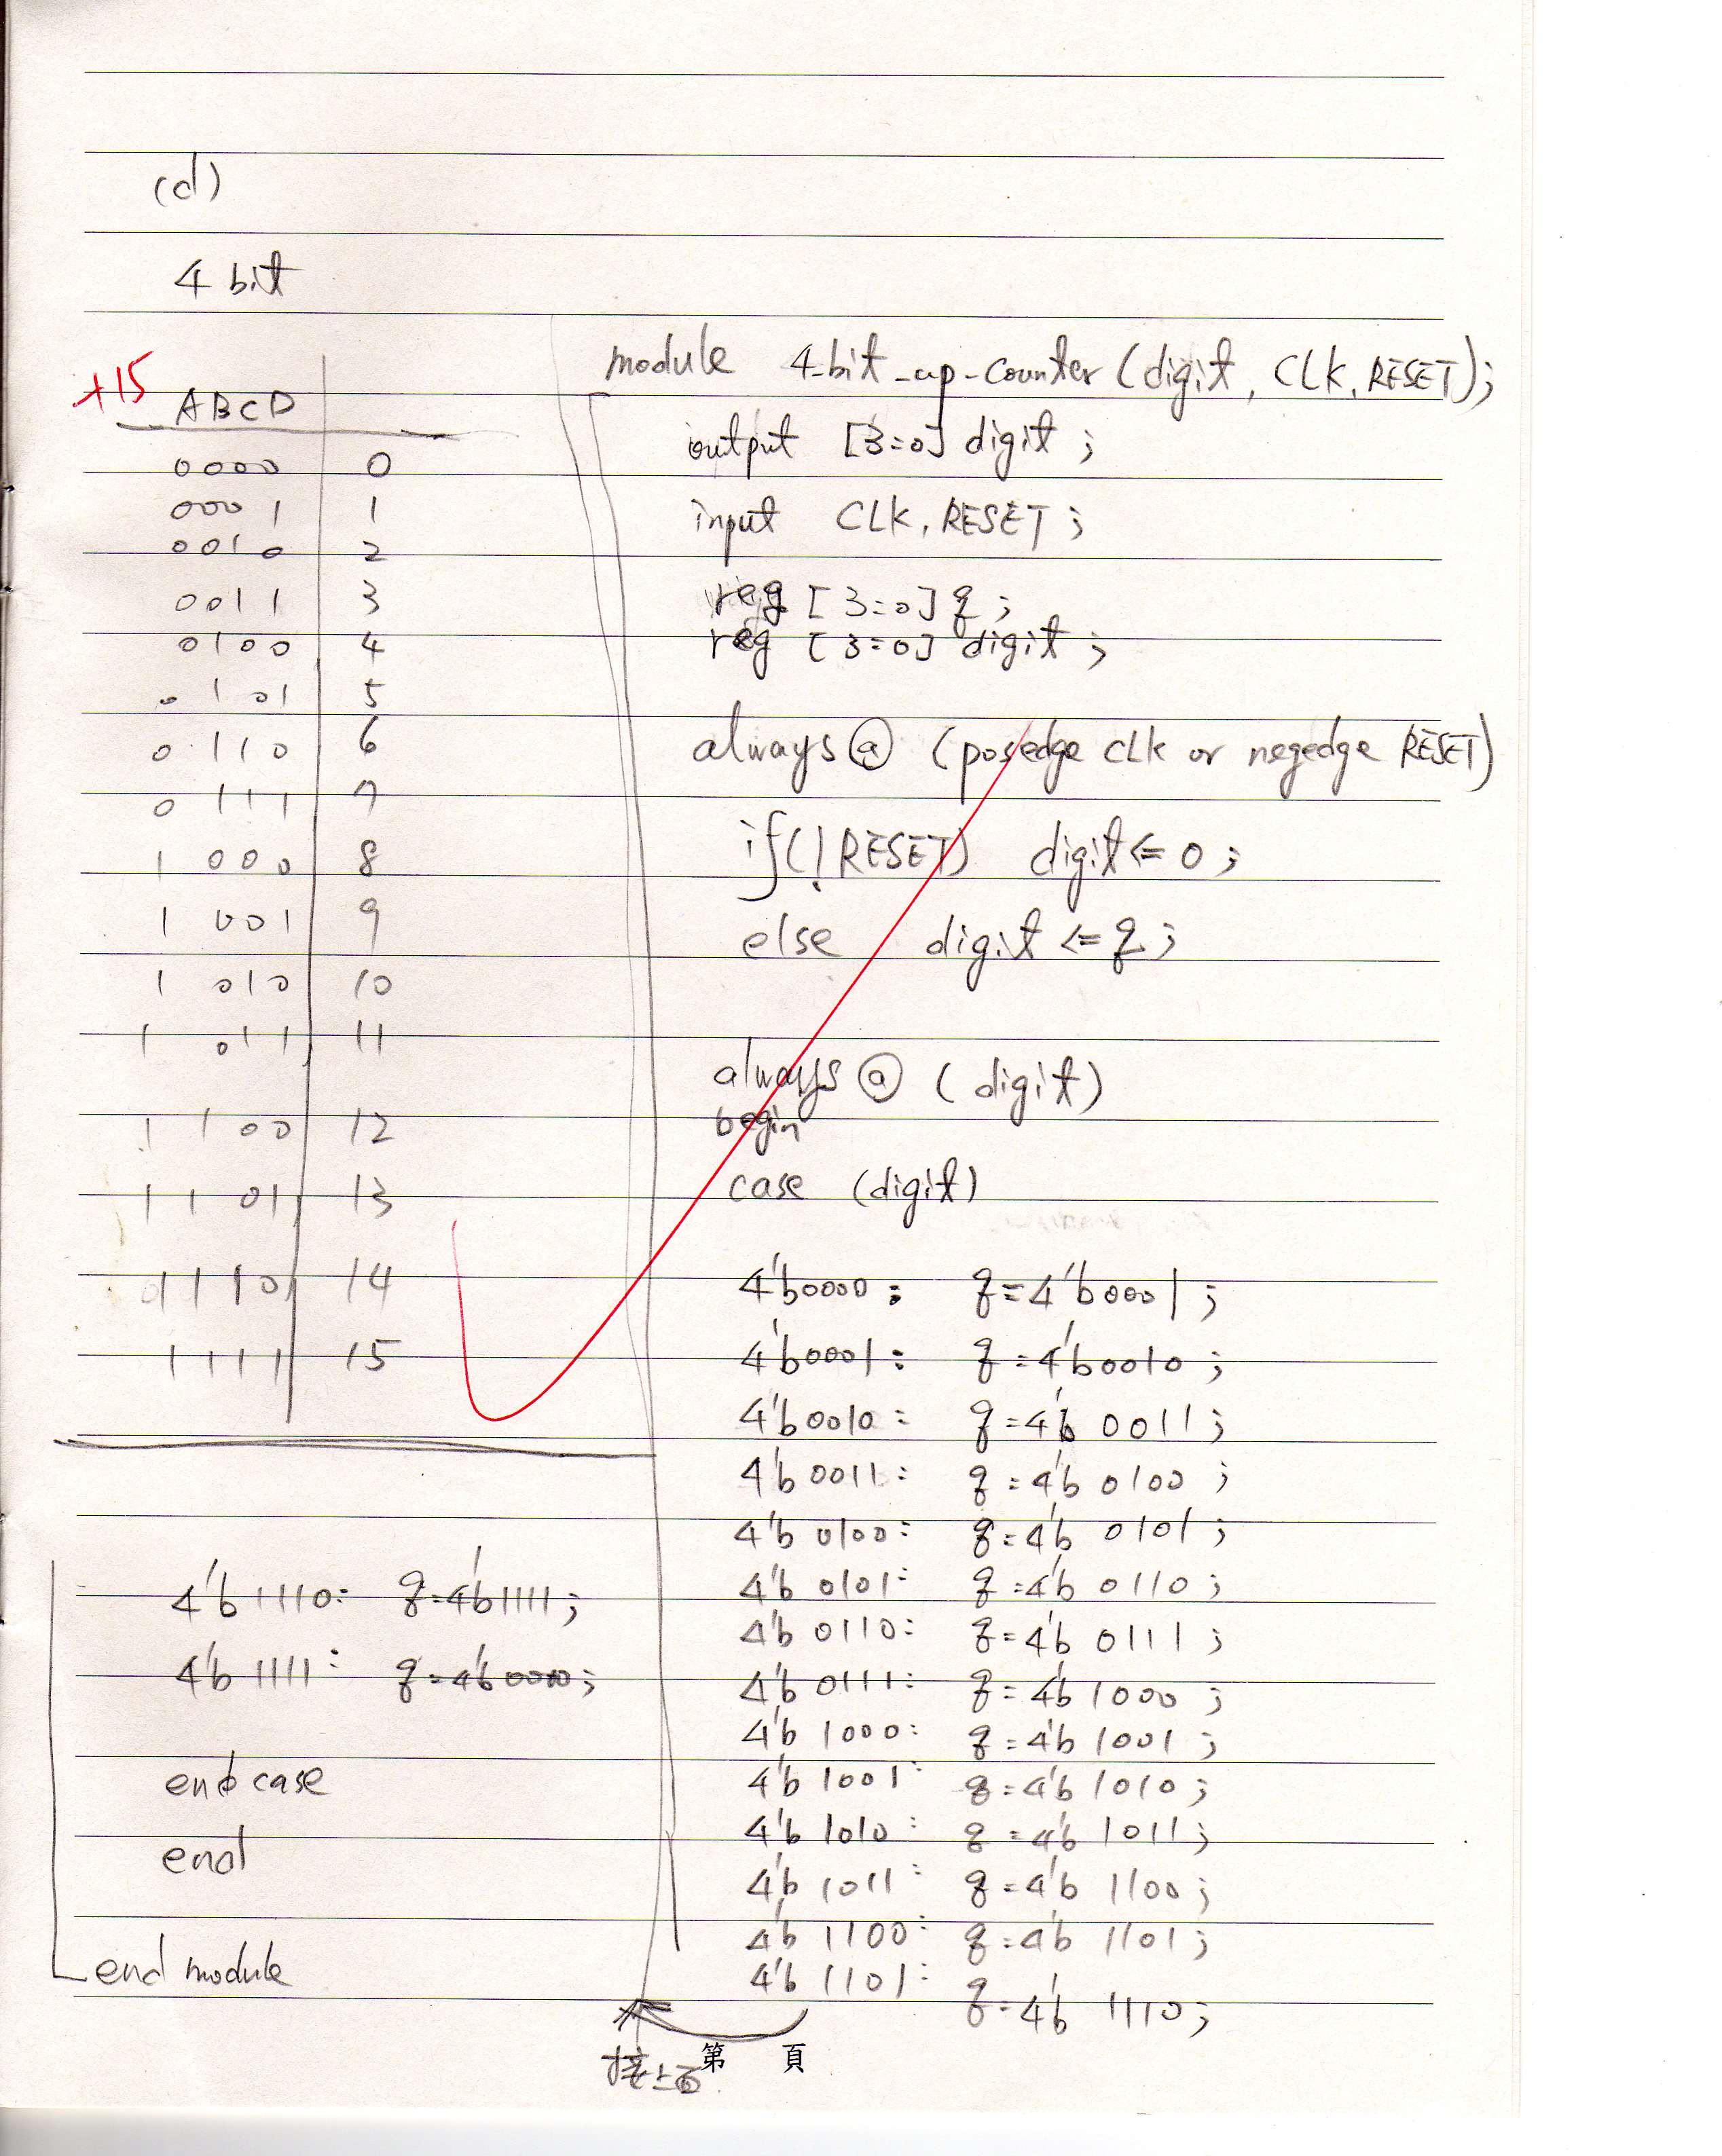 (d)
4 bit
+15
ABCD
0000 0
0001 1
0010 2
0011 3
0100 4
0101 5
0110 6
0111 7
1000 8
1001 9
1010 10
1011 11
1100 12
1101 13
1110 14
1111 15
module 4-bit-up-counter (digit, CLK, RESET);
output [3:0] digit;
input CLK, RESET;
reg [3:0] q;
reg [3:0] digit;
always @ (posedge CLK or negedge RESET)
if(!RESET) digit <= 0;
else digit <= q;
always @ (digit)
begin
case (digit)
4'b0000: q=4'b0001;
4'b0001: q=4'b0010;
4'b0010: q=4'b0011;
4'b0011: q=4'b0100;
4'b0100: q=4'b0101;
4'b0101: q=4'b0110;
4'b0110: q=4'b0111;
4'b0111: q=4'b1000;
4'b1000: q=4'b1001;
4'b1001: q=4'b1010;
4'b1010: q=4'b1011;
4'b1011: q=4'b1100;
4'b1100: q=4'b1101;
4'b1101: q=4'b1110;
接上面
4'b1110: q=4'b1111;
4'b1111: q=4'b0000;
end case
end
end module
第 頁